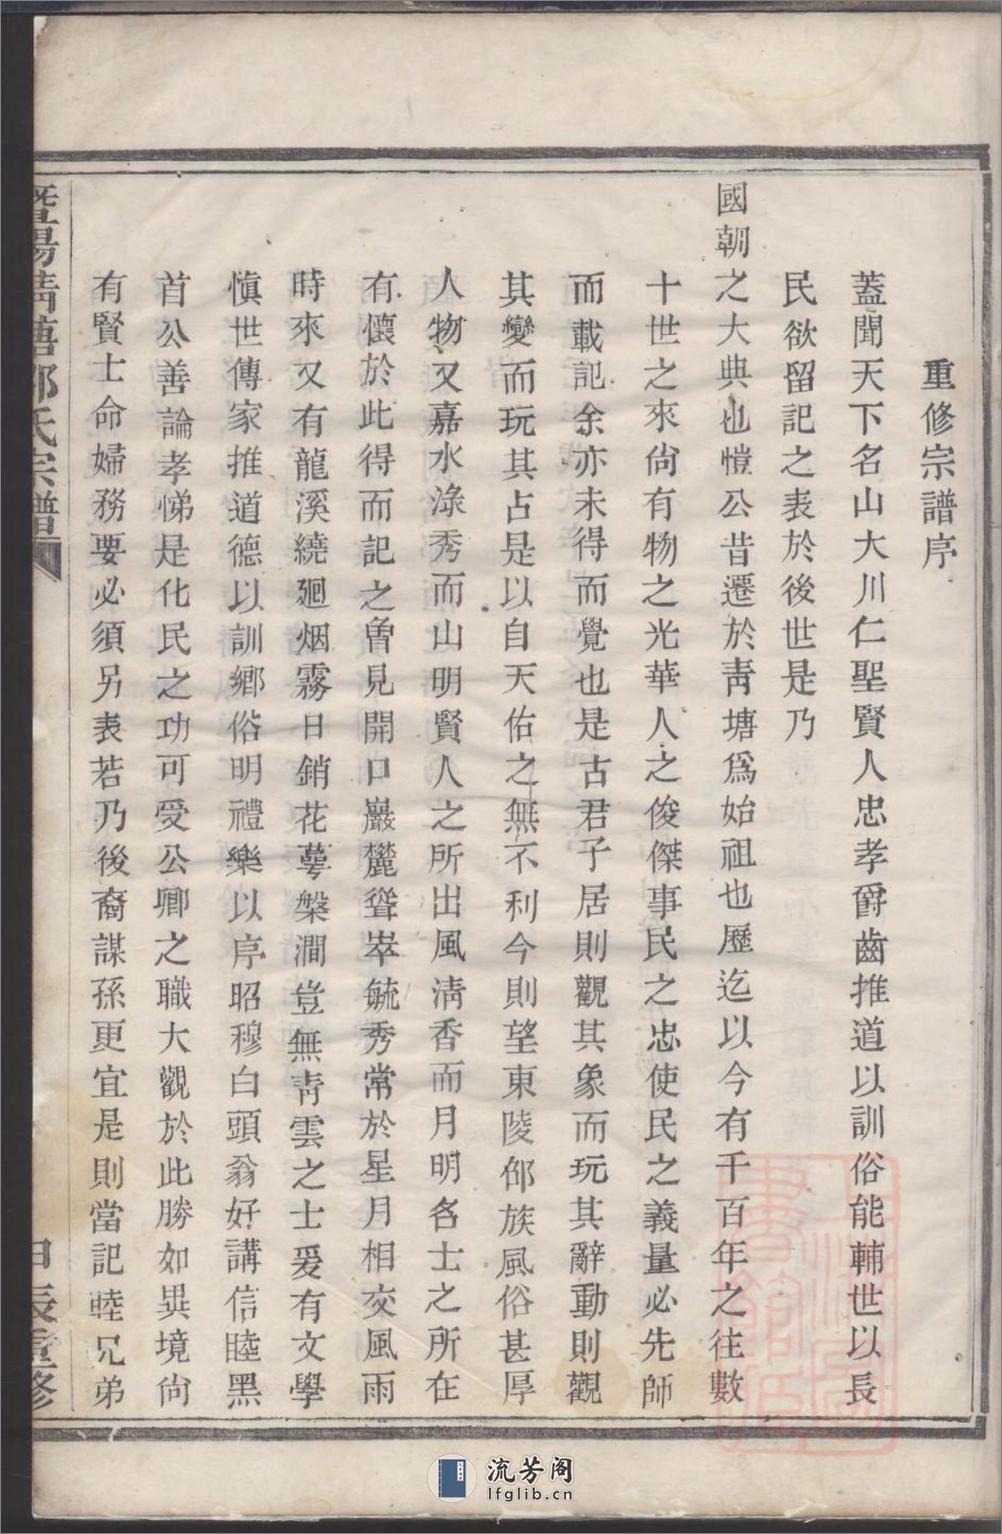 重修宗譜序
蓋聞天下名山大川仁聖賢人忠孝爵齒推道以訓俗能輔世以長
民欲留記之表於後世是乃
國朝之大典也愷公昔遷於靑塘爲始祖也歷迄以今有千百年之往數
十世之來尙有物之光華人之俊傑事民之忠使民之義量必先師
而載記余亦未得而覺也是古君子居則觀其象而玩其辭動則觀
其變而玩其占是以自天佑之無不利今則望東陵邵族風俗甚厚
人物又嘉水淥秀而山明賢人之所出風淸香而月明名士之所在
有懷於此得而記之曾見開口巖麓聳崒毓秀常於星月相交風雨
時來又有龍溪繞廻烟霧日銷花蕚槃澗豈無靑雲之士爰有文學
愼世傳家推道德以訓鄕俗明禮樂以序昭穆白頭翁好講信睦黑
首公善論孝悌是化民之功可受公卿之職大觀於此勝如異境尙
有賢士命婦務要必須另表若乃後裔謀孫更宜是則當記睦兄弟
暨陽靑塘邵氏宗譜
甲辰重修
流芳阁
lfglib.cn